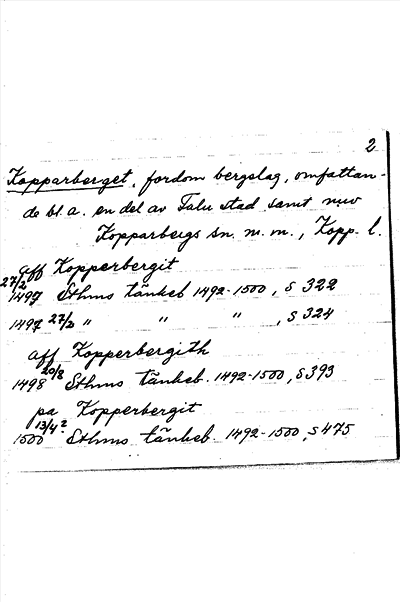 2
Kopparberget, fordom bergslag, omfattan-
de bl. a. en del av Falu stad samt nuv
Kopparbergs sn. m. m., Kopp. l.
aff Kopperbergit
27/2 1497 Sthms tänkeb 1492-1500, s 322
1497 27/2 " " " , s 324
aff Kopperbergith
1498 20/8 Sthms tänkeb. 1492-1500, s 393
pa Kopperbergit
1500 13/4? Sthms tänkeb. 1492-1500, s 475